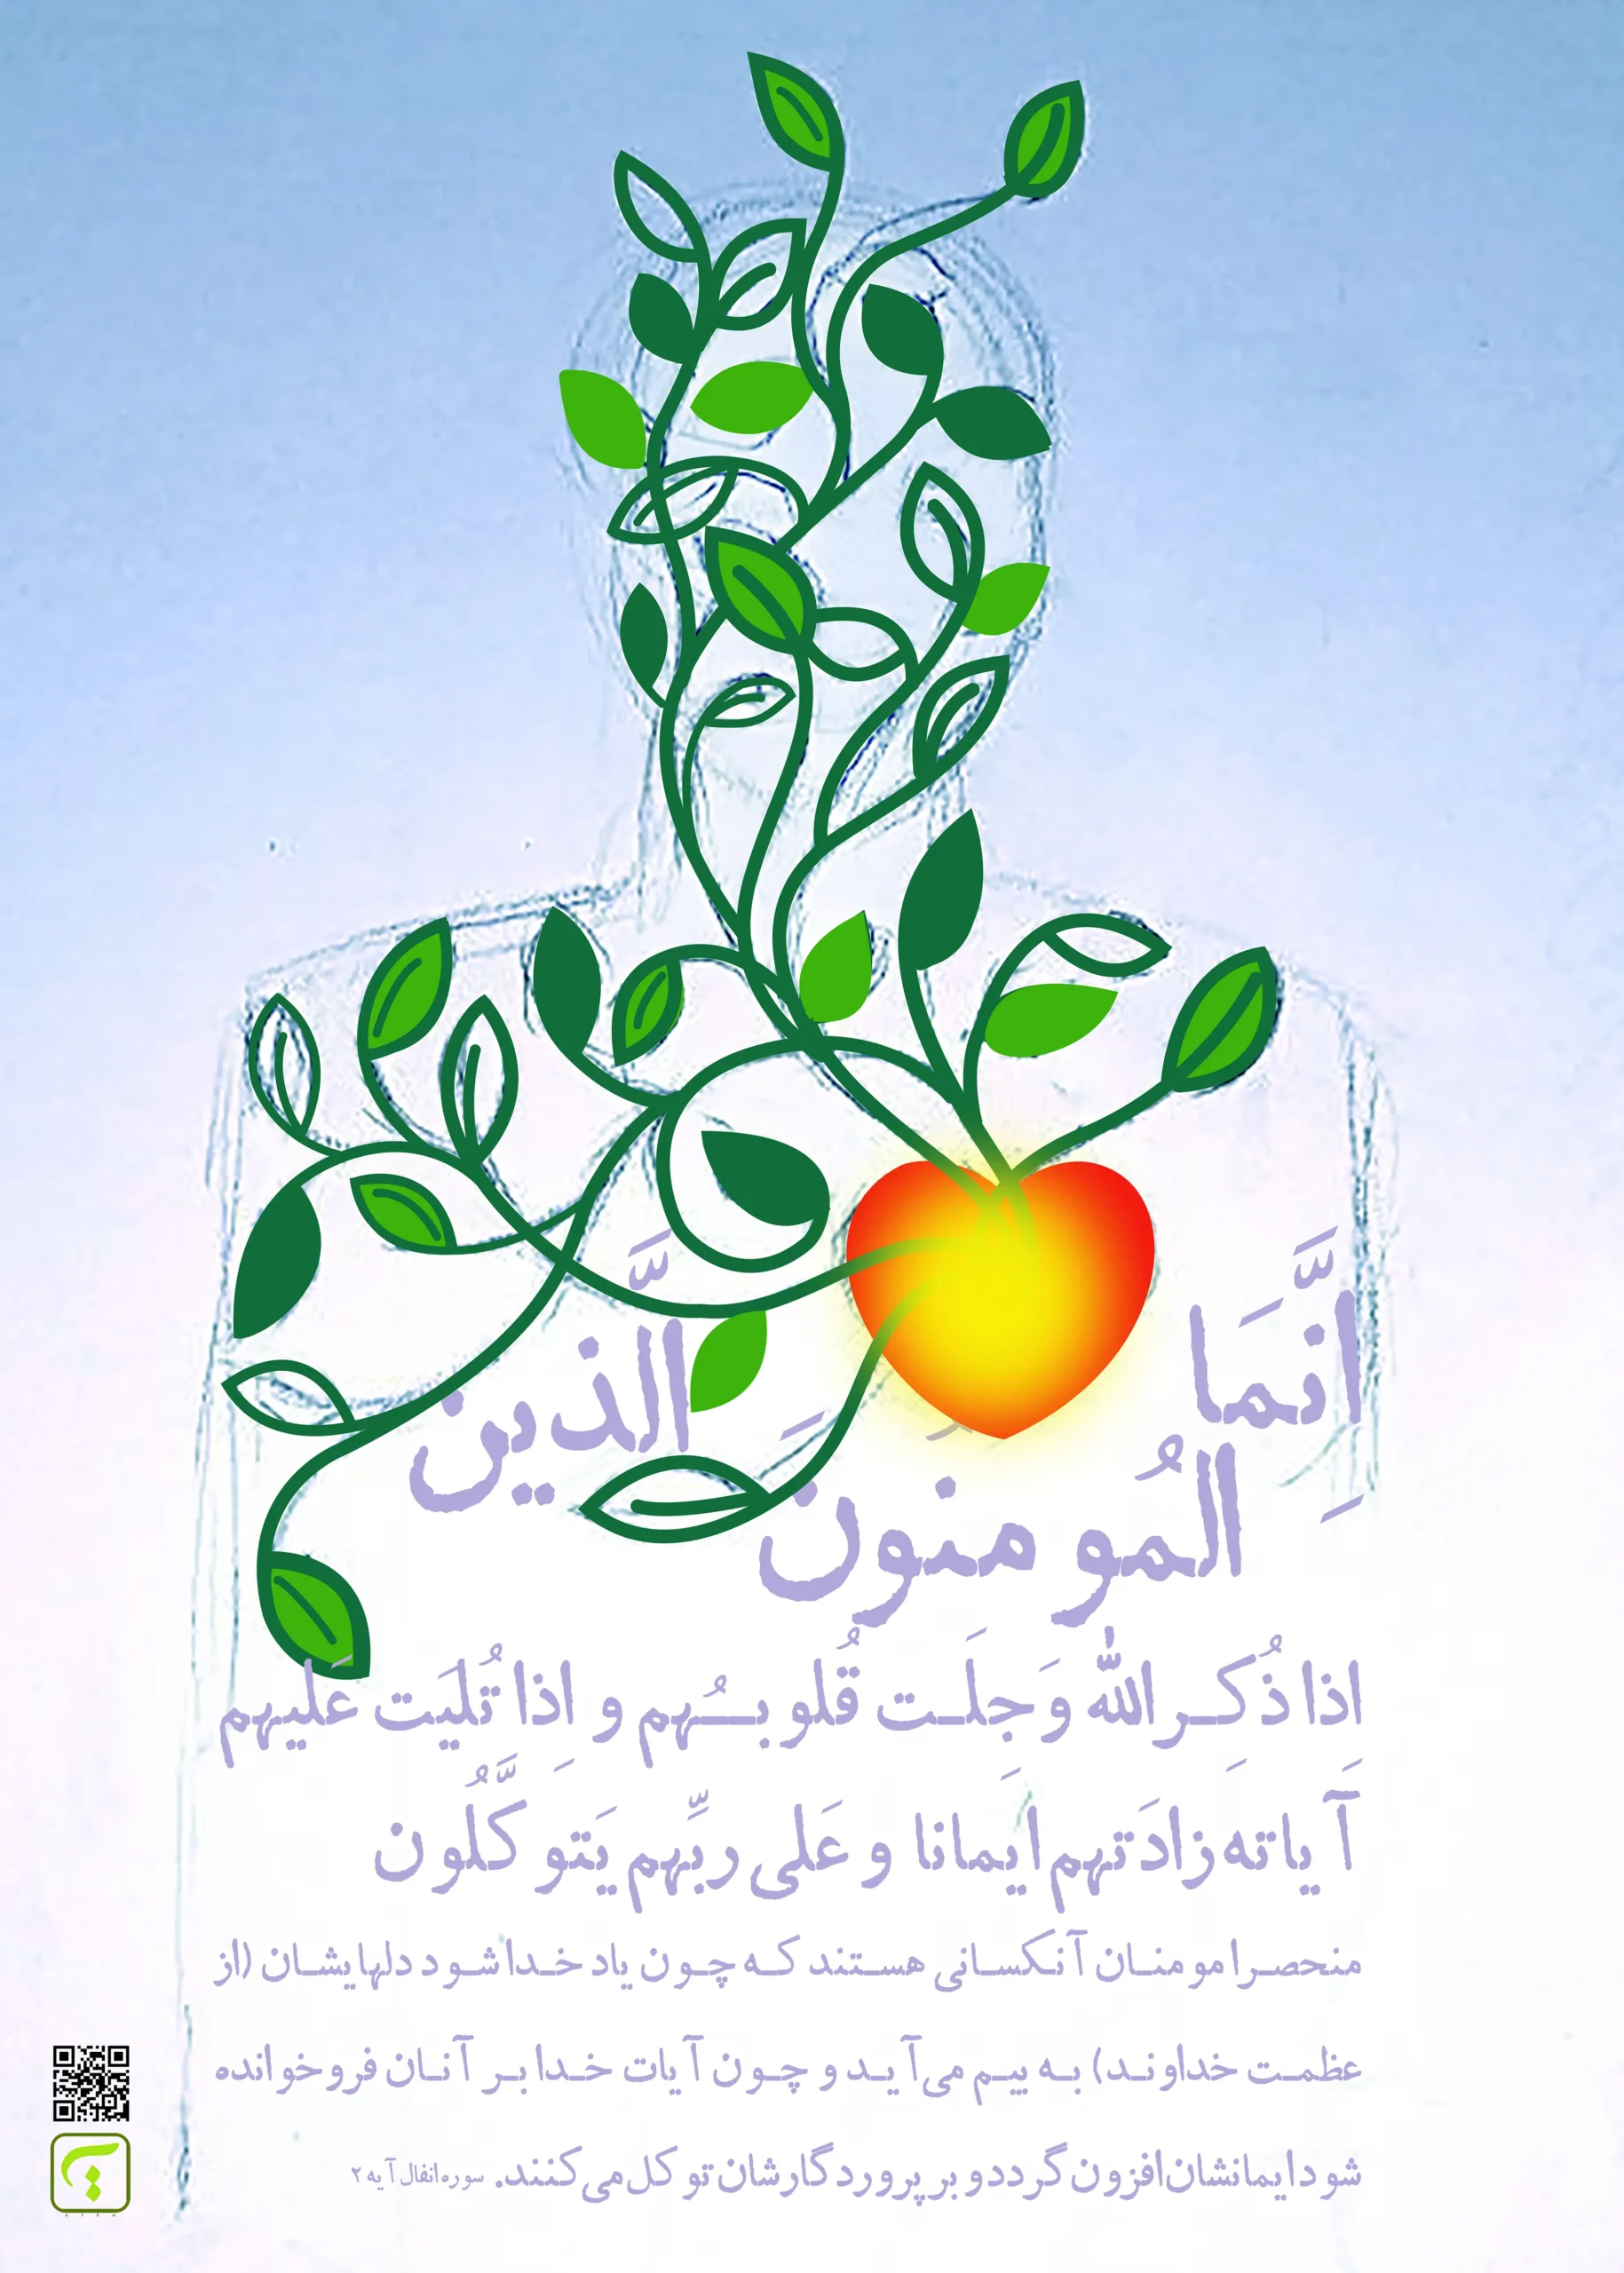 اِنَّمَا
المُومنُونَ
الَّذین
اذا ذُکِر الله وَجِلَت قُلوبُهم و اِذا تُلیَت عَلیهم
آیاته زادَتهم ایمانا و عَلی ربِّهم یَتوکَّلُون
منحصرا مومنان آنکسانی هستند که چون یاد خدا شود دلهایشان (از
عظمت خداوند) به بیم می‌آید و چون آیات خدا بر آنان فرو خوانده
شود ایمانشان افزون گردد و بر پروردگارشان توکل می‌کنند. سوره انفال آیه ۲